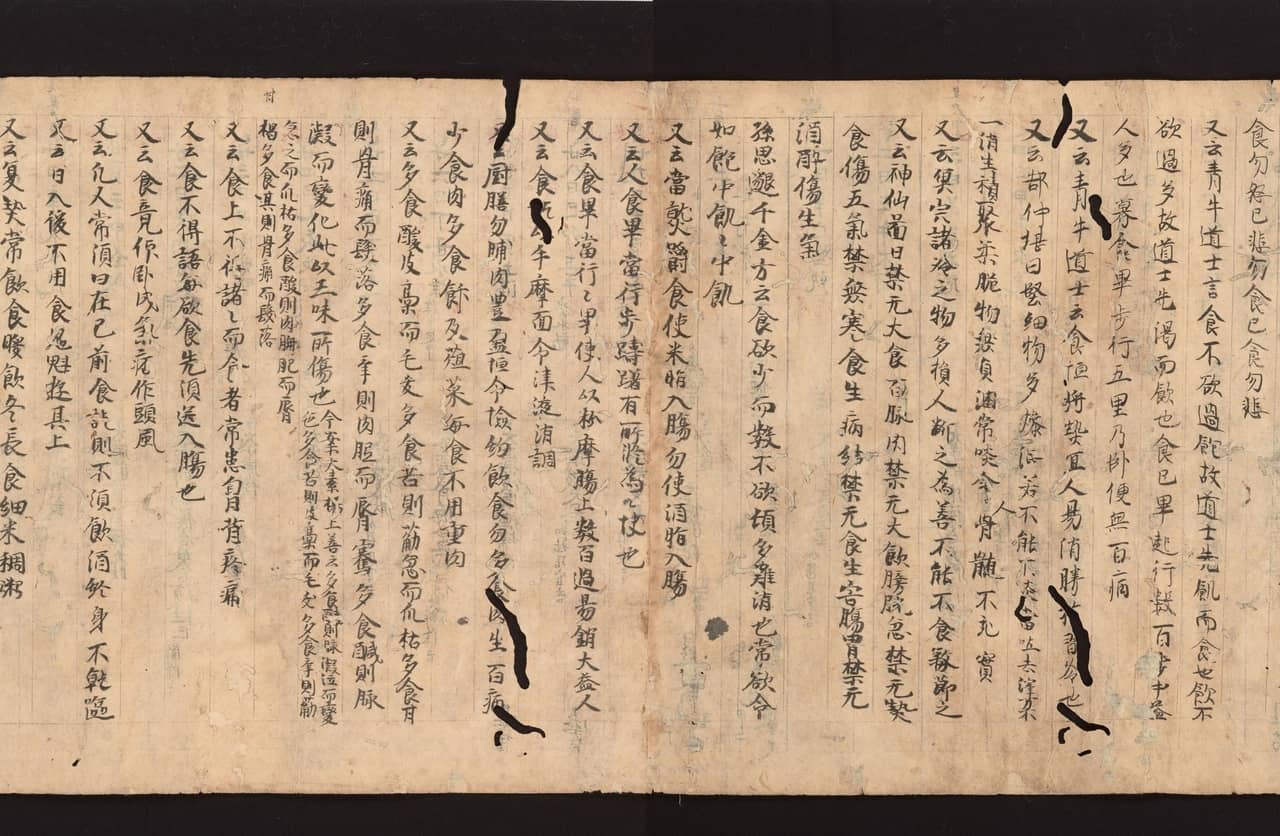 食勿怒已悲勿食已食勿悲
又云青牛道士言食不欲過飽故道士先飢而食也飲不
欲過多故道士先渴而飲也食已畢起行數百步中益
人多也暮食畢步行五里乃卧便無百病
又云青牛道士云食恒將熱宜人易消勝於習冷也
又云郄仲堪曰堅細物多燥澁若不能不
一消生積聚柔脆物無貪濕常啖令人骨髓不充實
又云臾穴諸冷之物多損人斷之為善不能不食務節之
又云神仙啚曰禁无大食百脉閇禁无大飲膀胱急禁无熱
食傷五氣禁無寒食生病結禁无食生害腸胃禁无
酒醉傷生氣
孫思邈千金方云食欲少而數不欲頓多難消也常欲令
如飽中飢〻中飽
又云當熟嚼食使米脂入腸勿使酒脂入腸
又云人食畢當行步躊躇有所脩為〻快也
又云食畢當行〻畢使人以粉摩腸上數百過易銷大益人
又云食以手摩面令津液消調
厨膳勿脯肉豊盈恒令儉約飲食勿多食肉生百病
少食肉多食飰及葅菜每食不用重肉
又云多食酸皮槀而毛夭多食苦則筋急而爪枯多食甘
則骨痛而髮落多食辛則肉胝而脣寋多食鹹則脉
凝而變化此以五味所傷也今案大素楊上善云多食鹹則脉凝泣而變
色多食苦則皮槀而毛夭多食辛則筋
急之而爪枯多食酸則肉胝䐢而脣
楬多食甘則骨痛而髮落
又云食上不得語〻而食者常患胷背疼痛
又云食不得語每欲食先須送入腸也
又云食竟仰卧成氣痞作頭風
又云凡人常須日在已前食訖則不須飲酒終身不乾嘔
又云日入後不用食鬼魁遊其上
又云夏熱常飲食暖飲冬長食細米稠粥